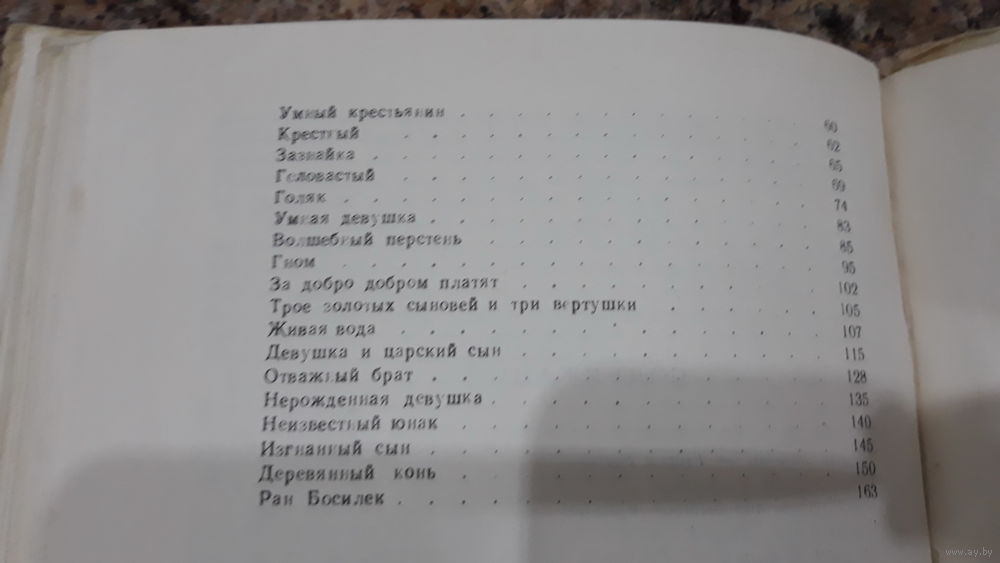 Умный крестьянин . . . . . . . . . . . . . 60
Крестный . . . . . . . . . . . . . 62
Зазнайка . . . . . . . . . . . . . 65
Головастый . . . . . . . . . . . . . 69
Голяк . . . . . . . . . . . . . 74
Умная девушка . . . . . . . . . . . . . 83
Волшебный перстень . . . . . . . . . . . . 85
Гном . . . . . . . . . . . . . 95
За добро добром платят . . . . . . . . . . . 102
Трое золотых сыновей и три вертушки . . . . . . 105
Живая вода . . . . . . . . . . . . . 107
Девушка и царский сын . . . . . . . . . . . 115
Отважный брат . . . . . . . . . . . . . 128
Нерожденная девушка . . . . . . . . . . . . 135
Неизвестный юнак . . . . . . . . . . . . . 140
Изгнанный сын . . . . . . . . . . . . . 145
Деревянный конь . . . . . . . . . . . . . 150
Ран Босилек . . . . . . . . . . . . . 163
www.ay.by